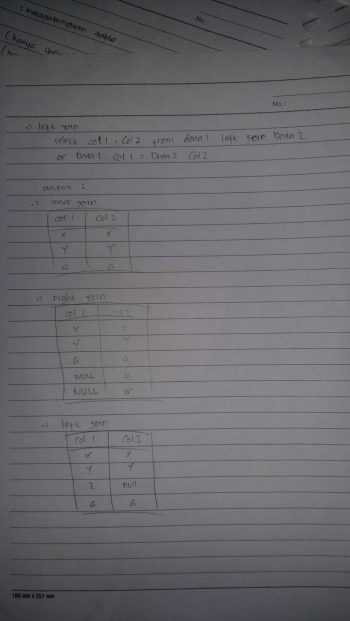 No :
No :
-> left join
select col 1 , col 2 from data 1 left join Data 2
on Data 1 . col 1 = Data 2 col 2
output :
-> inner join
col 1 col 2
X X
Y Y
G G
-> right join
col 1 col 2
X X
Y Y
G G
NULL b
NULL
-> left join
col 1 col 2
X X
Y Y
Z null
G G